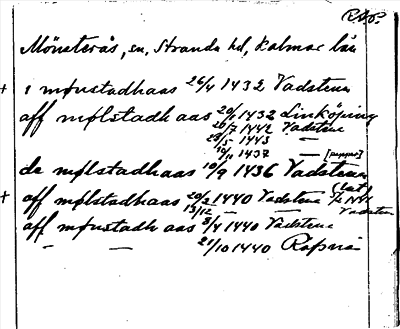 R.A.P.
Mönsterås, sn, Stranda hd, Kalmar län
+ i mønstadhaas 26/4 1432 Vadstena
aff mølstadh aas 20/1 1432 Linköping
20/7 1442 Vadstena
28/5 1443 —
10/11 1437 — [papper]
de mølstadhaas 10/9 1436 Vadstena
(lat)
+ aff mølstadhaas 20/2 1440 Vadstena 1441
13/12 — Vadstena
aff mønstadh aas 8/4 1440 Vadstena
— — 21/10 1440